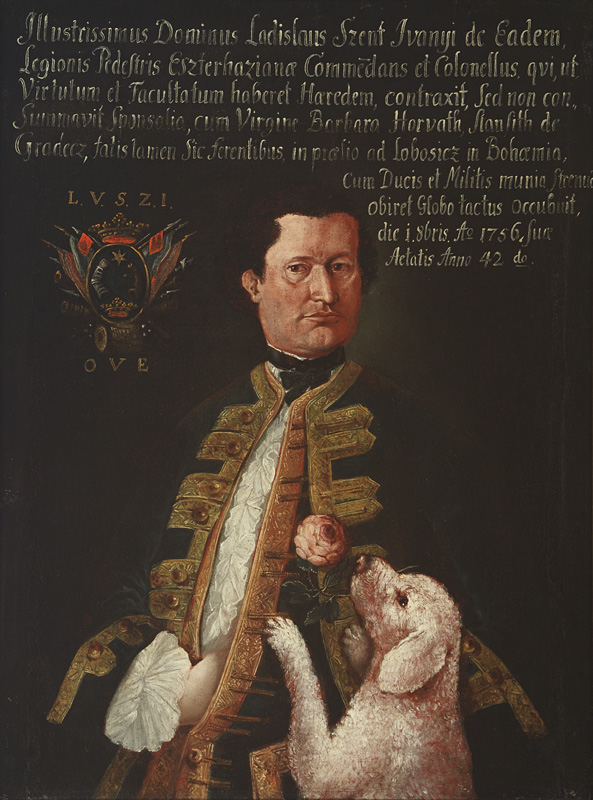 Illustrissimus Dominus Ladislaus Szent Ivanyi de Eadem,
Legionis Pedestris Eszterhazianæ Commēdans et Colonellus, qvi, ut
Virtutum et Facultatum haberet Hæredem, contraxit, Sed non con,,
Summavit Sponsalia, cum Virgine Barbara Horvath, Stansith de
Gradecz, fatis tamen Sic ferentibus, in prælio ad Lobosicz in Bohæmia,
Cum Ducis et Militis munia strenue
obiret Globo tactus Occubuit,
die 1. 8bris, Aō 1756. suæ
Aetatis Anno 42 do.
L. V. S. Z. I.
O V E